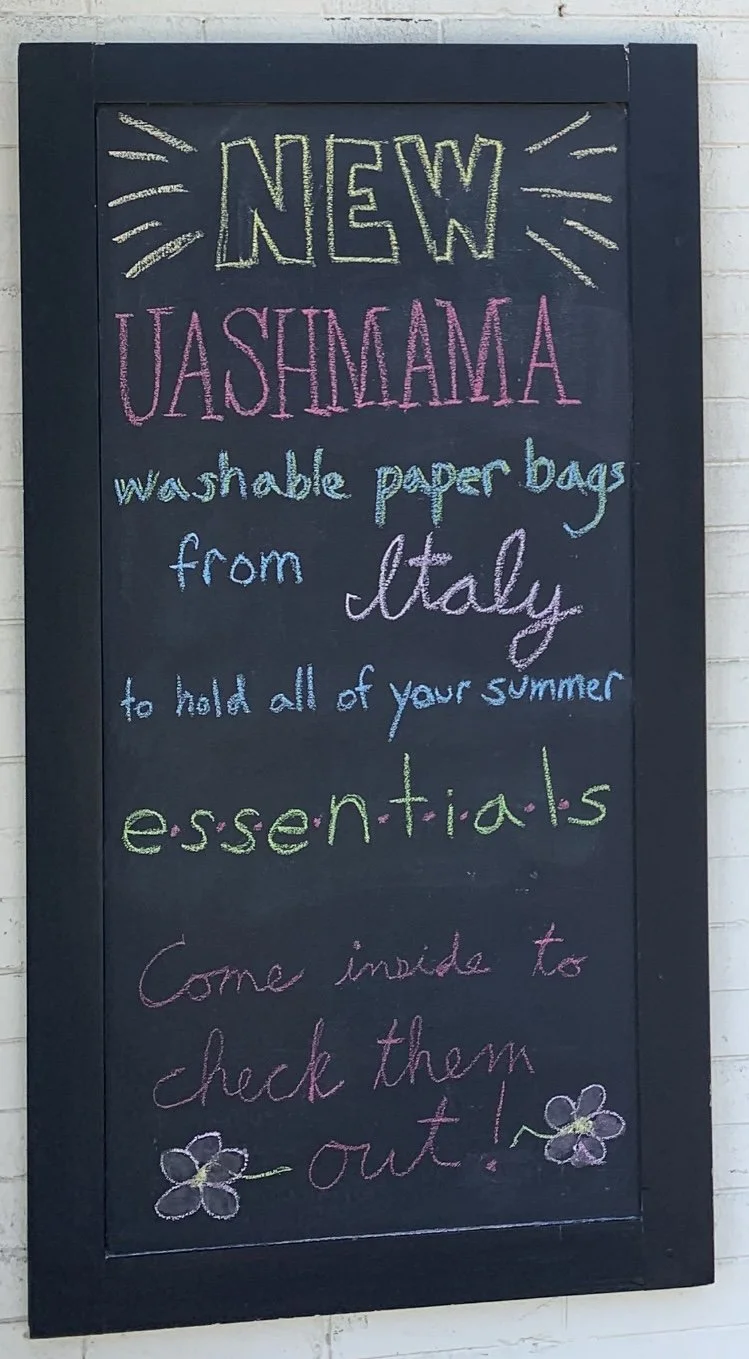 NEW
UASHMAMA
washable paper bags
from Italy
to hold all of your summer
e·s·s·e·n·t·i·a·l·s
Come inside to
check them
out!